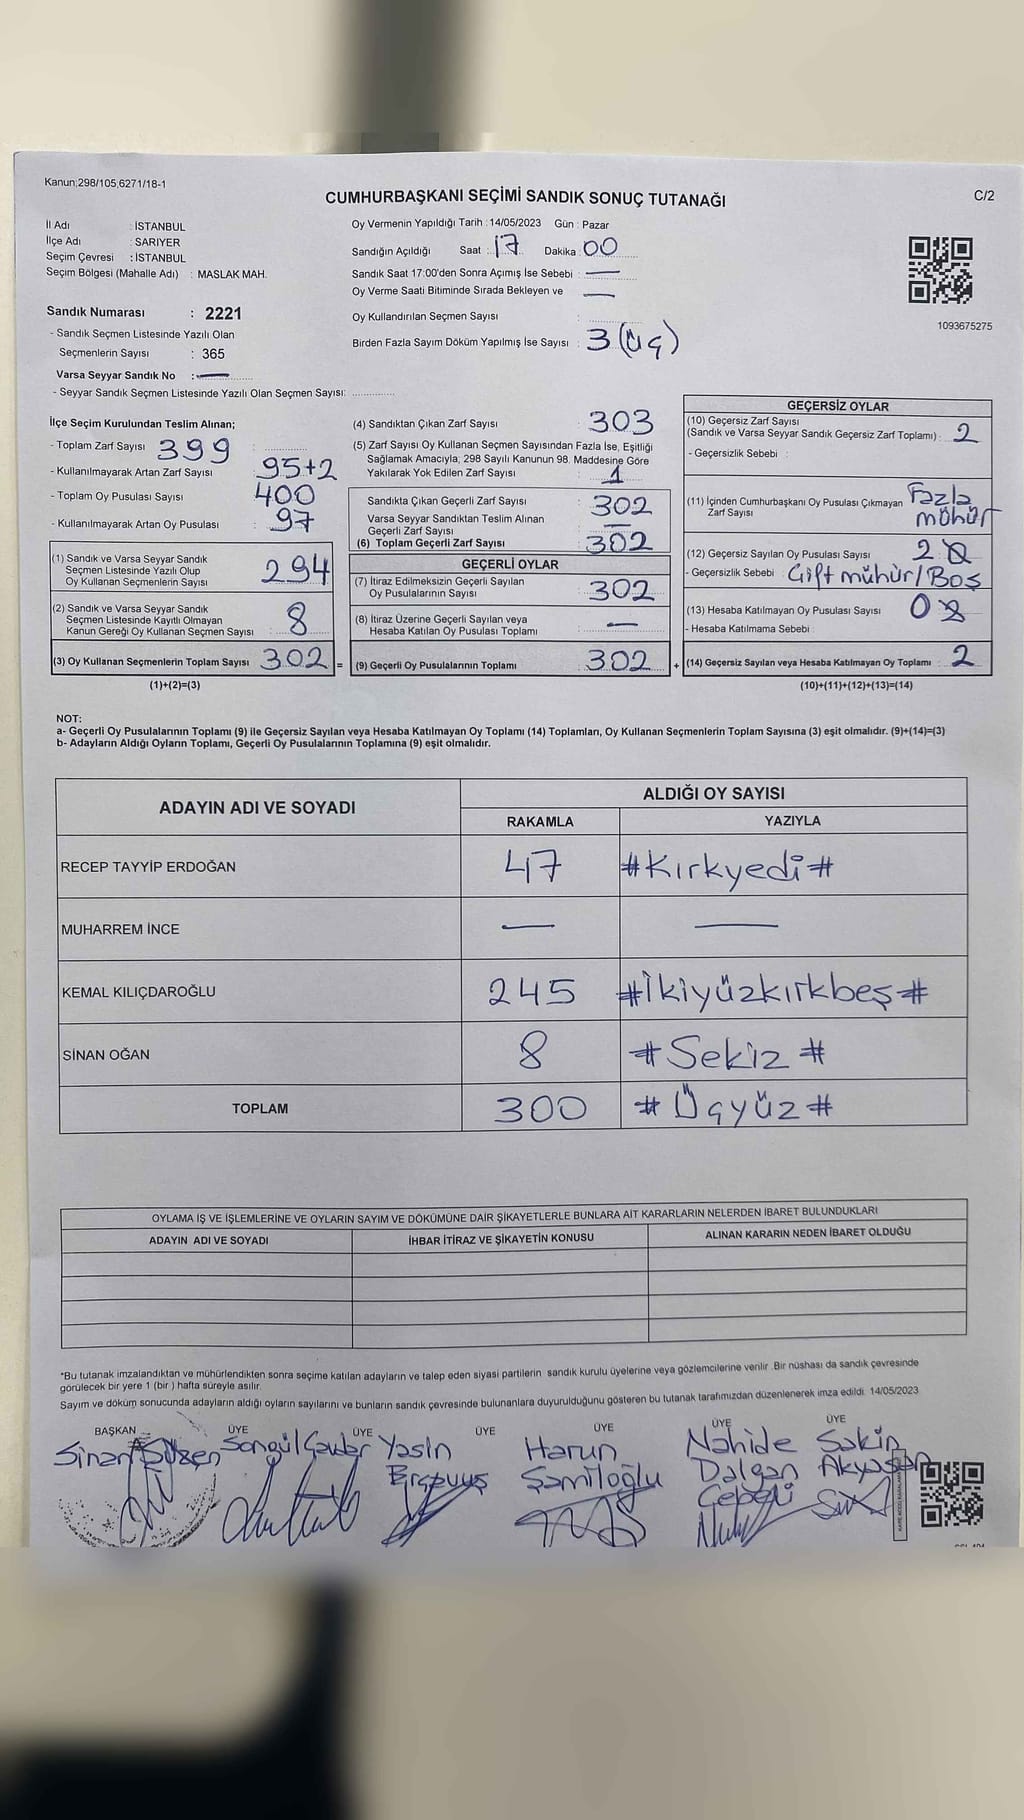 Kanun;298/105,6271/18-1
CUMHURBAŞKANI SEÇİMİ SANDIK SONUÇ TUTANAĞI
C/2
İl Adı : İSTANBUL
İlçe Adı : SARIYER
Seçim Çevresi : İSTANBUL
Seçim Bölgesi (Mahalle Adı) : MASLAK MAH.
Oy Vermenin Yapıldığı Tarih : 14/05/2023 Gün : Pazar
Sandığın Açıldığı Saat : 17 Dakika : 00
Sandık Saat 17:00'den Sonra Açımış İse Sebebi : —
Oy Verme Saati Bitiminde Sırada Bekleyen ve —
Oy Kullandırılan Seçmen Sayısı :
Birden Fazla Sayım Döküm Yapılmış İse Sayısı : 3 (üç)
1093675275
Sandık Numarası : 2221
- Sandık Seçmen Listesinde Yazılı Olan
Seçmenlerin Sayısı : 365
Varsa Seyyar Sandık No : —
- Seyyar Sandık Seçmen Listesinde Yazılı Olan Seçmen Sayısı:
İlçe Seçim Kurulundan Teslim Alınan;
- Toplam Zarf Sayısı 399
- Kullanılmayarak Artan Zarf Sayısı 95+2
- Toplam Oy Pusulası Sayısı 400
- Kullanılmayarak Artan Oy Pusulası : 97
(1) Sandık ve Varsa Seyyar Sandık
Seçmen Listesinde Yazılı Olup
Oy Kullanan Seçmenlerin Sayısı : 294
(2) Sandık ve Varsa Seyyar Sandık
Seçmen Listesinde Kayıtlı Olmayan
Kanun Gereği Oy Kullanan Seçmen Sayısı : 8
(3) Oy Kullanan Seçmenlerin Toplam Sayısı : 302 =
(1)+(2)=(3)
(4) Sandıktan Çıkan Zarf Sayısı : 303
(5) Zarf Sayısı Oy Kullanan Seçmen Sayısından Fazla İse, Eşitliği
Sağlamak Amacıyla; 298 Sayılı Kanunun 98. Maddesine Göre
Yakılarak Yok Edilen Zarf Sayısı : 1
Sandıkta Çıkan Geçerli Zarf Sayısı : 302
Varsa Seyyar Sandıktan Teslim Alınan
Geçerli Zarf Sayısı : —
(6) Toplam Geçerli Zarf Sayısı : 302
GEÇERLİ OYLAR
(7) İtiraz Edilmeksizin Geçerli Sayılan
Oy Pusulalarının Sayısı : 302
(8) İtiraz Üzerine Geçerli Sayılan veya
Hesaba Katılan Oy Pusulası Toplamı : —
(9) Geçerli Oy Pusulalarının Toplamı : 302 +
GEÇERSİZ OYLAR
(10) Geçersiz Zarf Sayısı
(Sandık ve Varsa Seyyar Sandık Geçersiz Zarf Toplamı) : 2
- Geçersizlik Sebebi :
(11) İçinden Cumhurbaşkanı Oy Pusulası Çıkmayan Fazla
Zarf Sayısı mühür
(12) Geçersiz Sayılan Oy Pusulası Sayısı : 2
- Geçersizlik Sebebi : Çift mühür/Boş
(13) Hesaba Katılmayan Oy Pusulası Sayısı : 0
- Hesaba Katılmama Sebebi :
(14) Geçersiz Sayılan veya Hesaba Katılmayan Oy Toplamı : 2
(10)+(11)+(12)+(13)=(14)
NOT:
a- Geçerli Oy Pusulalarının Toplamı (9) ile Geçersiz Sayılan veya Hesaba Katılmayan Oy Toplamı (14) Toplamları, Oy Kullanan Seçmenlerin Toplam Sayısına (3) eşit olmalıdır. (9)+(14)=(3)
b- Adayların Aldığı Oyların Toplamı, Geçerli Oy Pusulalarının Toplamına (9) eşit olmalıdır.
ADAYIN ADI VE SOYADI
ALDIĞI OY SAYISI
RAKAMLA YAZIYLA
RECEP TAYYİP ERDOĞAN 47 #Kırkyedi#
MUHARREM İNCE — —
KEMAL KILIÇDAROĞLU 245 #İkiyüzkırkbeş#
SİNAN OĞAN 8 #Sekiz#
TOPLAM 300 #Üçyüz#
OYLAMA İŞ VE İŞLEMLERİNE VE OYLARIN SAYIM VE DÖKÜMÜNE DAİR ŞİKAYETLERLE BUNLARA AİT KARARLARIN NELERDEN İBARET BULUNDUKLARI
ADAYIN ADI VE SOYADI İHBAR İTİRAZ VE ŞİKAYETİN KONUSU ALINAN KARARIN NEDEN İBARET OLDUĞU
*Bu tutanak imzalandıktan ve mühürlendikten sonra seçime katılan adayların ve talep eden siyasi partilerin sandık kurulu üyelerine veya gözlemcilerine verilir. Bir nüshası da sandık çevresinde
görülecek bir yere 1 (bir ) hafta süreyle asılır.
Sayım ve döküm sonucunda adayların aldığı oyların sayılarını ve bunların sandık çevresinde bulunanlara duyurulduğunu gösteren bu tutanak tarafımızdan düzenlenerek imza edildi. 14/05/2023
BAŞKAN ÜYE ÜYE ÜYE ÜYE ÜYE ÜYE
Sinan Songül Yasin Harun Nahide Sakin
Şamiloğlu Dalgan Akyasan